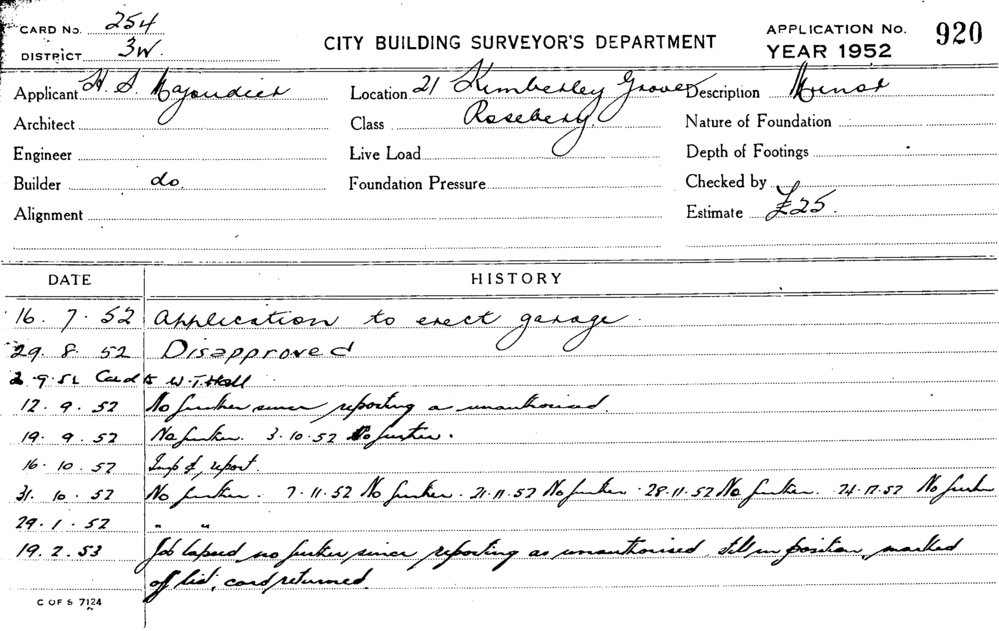 CARD No. 254
DISTRICT 3W.
CITY BUILDING SURVEYOR'S DEPARTMENT
APPLICATION No. 920
YEAR 1952
Applicant H. S.
Location 21 Kimberley Grove
Description Minor
Architect
Class Rosebery.
Nature of Foundation
Engineer
Live Load
Depth of Footings
Builder do.
Foundation Pressure
Checked by
Alignment
Estimate £25.
DATE HISTORY
16. 7. 52 Application to erect garage.
29. 8. 52 Disapproved
2.9.52 Card to W.T. Hall
12. 9. 52 No further since reporting a unauthorised.
19. 9. 52 No further. 3.10.52 No further.
16. 10. 52 Insp & report.
31. 10. 52 No further. 7.11.52 No further. 21.11.52 No further. 28.11.52 No further. 24.12.52 No further
29. 1. 52 " "
19. 2. 53 Job lapsed no further since reporting as unauthorised still in position, marked
off list, card returned.
C OF S 7124